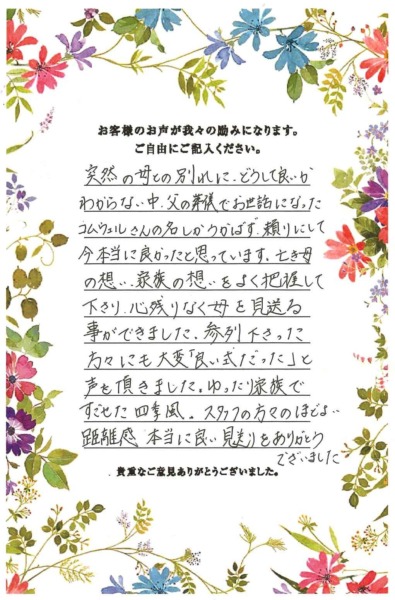 お客様のお声が我々の励みになります。
ご自由にご記入ください。
突然の母との別れに、どうして良いか
わからない中、父の葬儀でお世話になった
コムウェルさんの名しかうかばず、頼りにして
今本当に良かったと思っています。亡き母
の想い、家族の想いをよく把握して
下さり、心残りなく母を見送る
事ができました。参列下さった
方々にも大変「良い式だった」と
声を頂きました。ゆったり家族で
すごせた四季風。スタッフの方々のほどよい
距離感 本当に良い見送りをありがとう
ございました
貴重なご意見ありがとうございました。